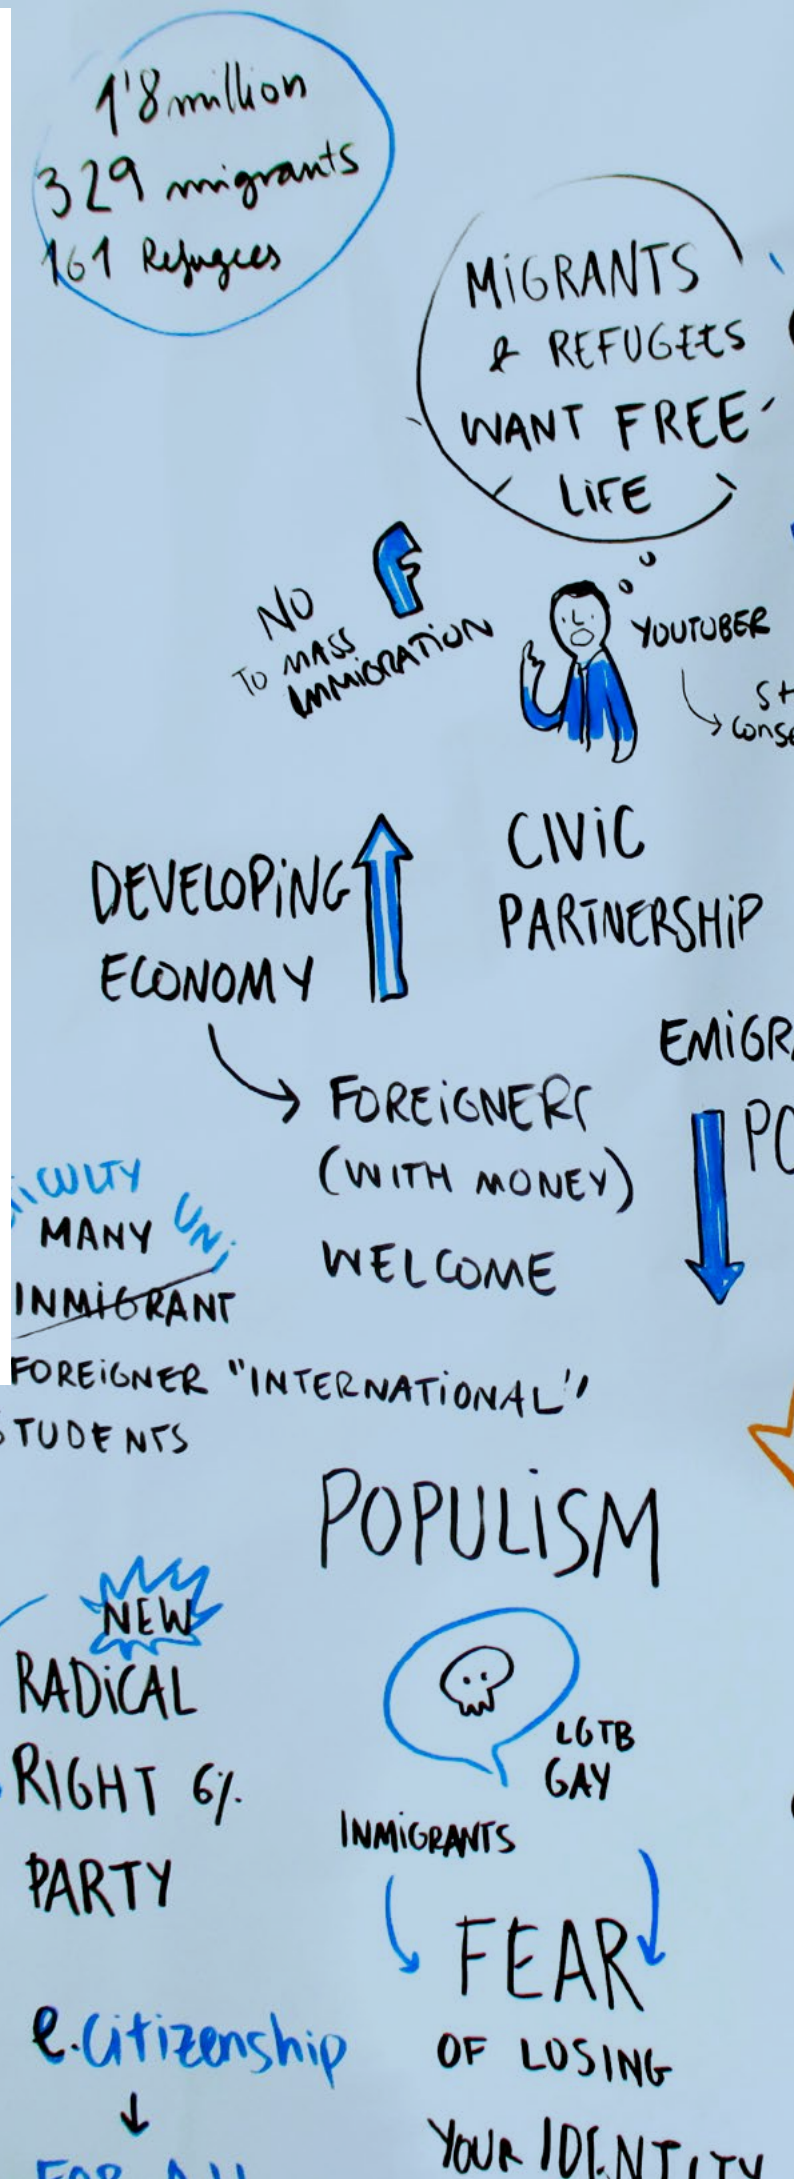 1'8 million
329 migrants
161 Refugees
MiGRANTS
& REFUGEES
WANT FREE
LiFE
NO
TO MASS
IMMIGRATION
YOUTUBER
DEVELOPiNG
ECONOMY
CIViC
PARTNERSHiP
FOREiGNERS
(WITH MONEY)
WELCOME
MANY
UNi
INMiGRANT
FOREiGNER "INTERNATiONAL"
STUDENTS
POPULiSM
NEW
RADiCAL
RIGHT 6%
PARTY
LGTB
GAY
INMiGRANTS
FEAR
OF LOSING
YOUR IDENTITY
e.Citizenship
FOR ALL